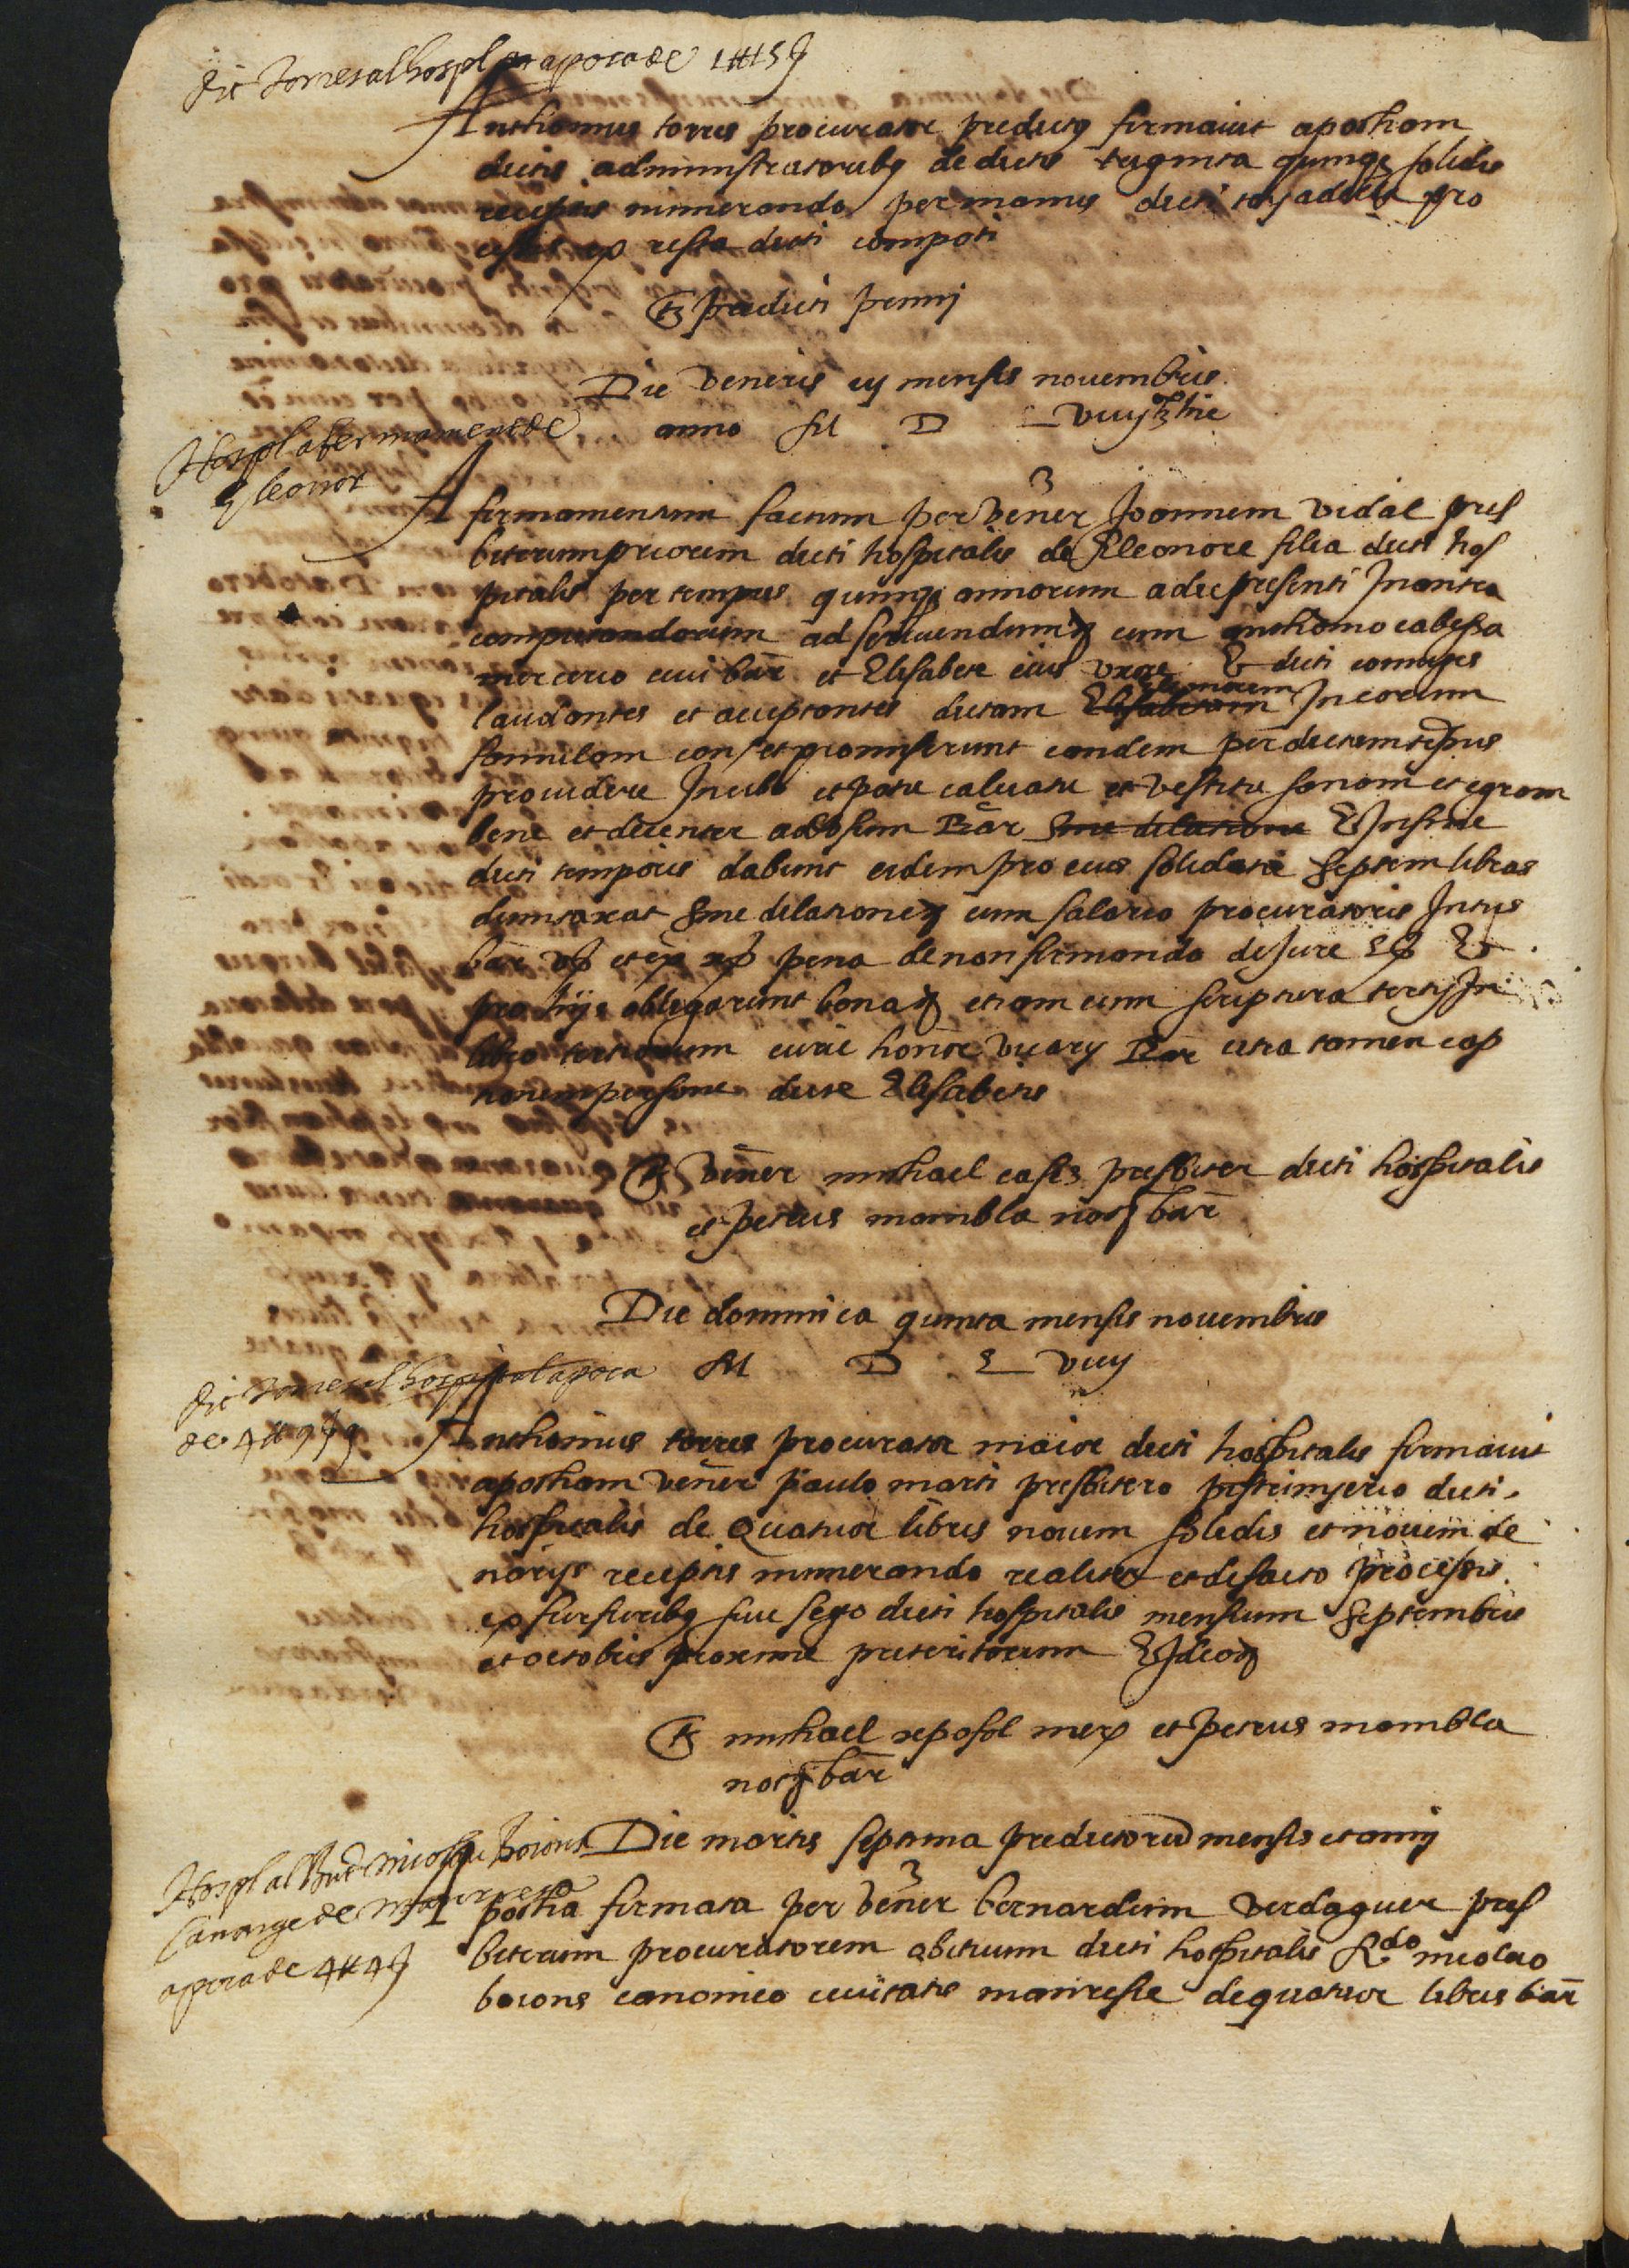 dit torres al hospl apoca de 1 ℔ 15 ſ
Anthonius torres procurator predictꝯ firmavit apocham
dictis administratoribꝯ de dictis triginta quinqꝫ solidis
receptis numerando per manus dicti
cessis ex resta dicti compoti
Tꝭ predicti proximj
Die veneris iij mensis novembris
anno M D L viiij
Hospl afermament de
Eleonor
Afirmamentum factum per vener Joannem vidal pres
biterum priorem dicti hospitalis de Eleonore filia dicti hos
pitalis per tempus quinqꝫ annorum a die presenti Inantea
computandorum ad serviendum cum anthonio cabessa
mercerio civi bar et Elisabete eius uxore Et dicti coniuges
laudantes et acceptantes dictam Elisabetam Elionorem In eorum
famulam con et promiserunt eandem per dictum tempus
providere In cibo et potu calciatu et vestitu sanam et egram
bene et decenter ad usum Bar sine dilatione Et In fine
dicti temporis dabunt eidem pro eius solidata septem libras
dumtaxat sine dilatione cum salario procuratoris Intus
bar pena de non firmando de Jure
pro hijs obligarunt bona etiam cum scriptura tertij In
libro tertiorum curie honor vicarij Bar citra tamen cap
tionem persone dicte Elisabetis
Tꝭ vener michael casis presbiter dicti hospitalis
et petrus mambla not bar
Die dominica quinta mensis novembris
M D L viiij
dit torres al hospital apoca
de 4 ℔ 9 ſ 9
Anthonius torres procurator maior dicti hospitalis firmavit
apocham vener paulo marti presbitero pistrinyerio dicti
hospitalis de quatuor libris novem solidis et novem de
narijs receptis numerando realiter et de facto processis
ex furfuribꝯ sive sego dicti hospitalis mensium septembris
et octobris proxime preteritorum Et Ideo
Tꝭ michael reposol mer et petrus mambla
not bar
Die martis septima predictorum mensis et annj
Hospl al Rnt nicolau boions
canonge de manresa
apoca de 4 ℔ 4 ſ
Apocha firmata per vener bernardum verdaguer pres
biterum procuratorem abituum dicti hospitalis Rdo nicolao
boions canonico civitatis manresie de quatuor libris bar